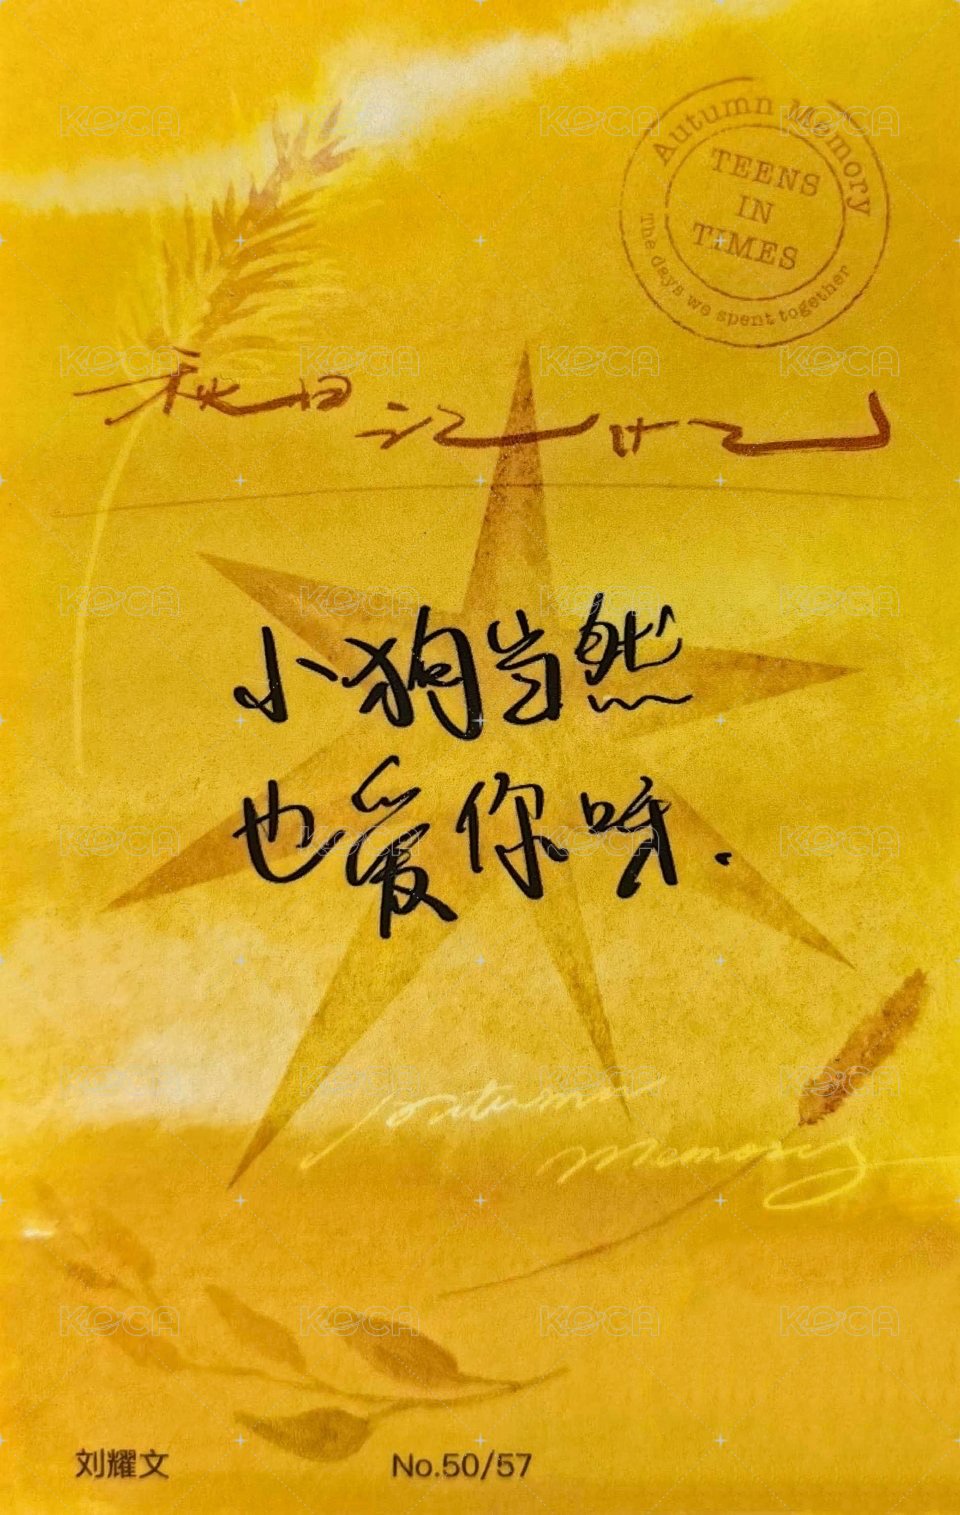 Autumn Memory
TEENS
IN
TIMES
The days we spent together
秋日记忆
小狗当然
也爱你呀.
Autumn
Memory
刘耀文
No.50/57
KOCA